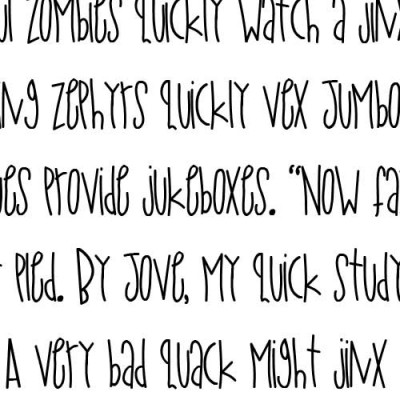 zombies quickly watch a jinx
zephyrs quickly vex jumbo
provide jukeboxes. “Now fa
pled. By Jove, my quick study
A very bad quack might jinx